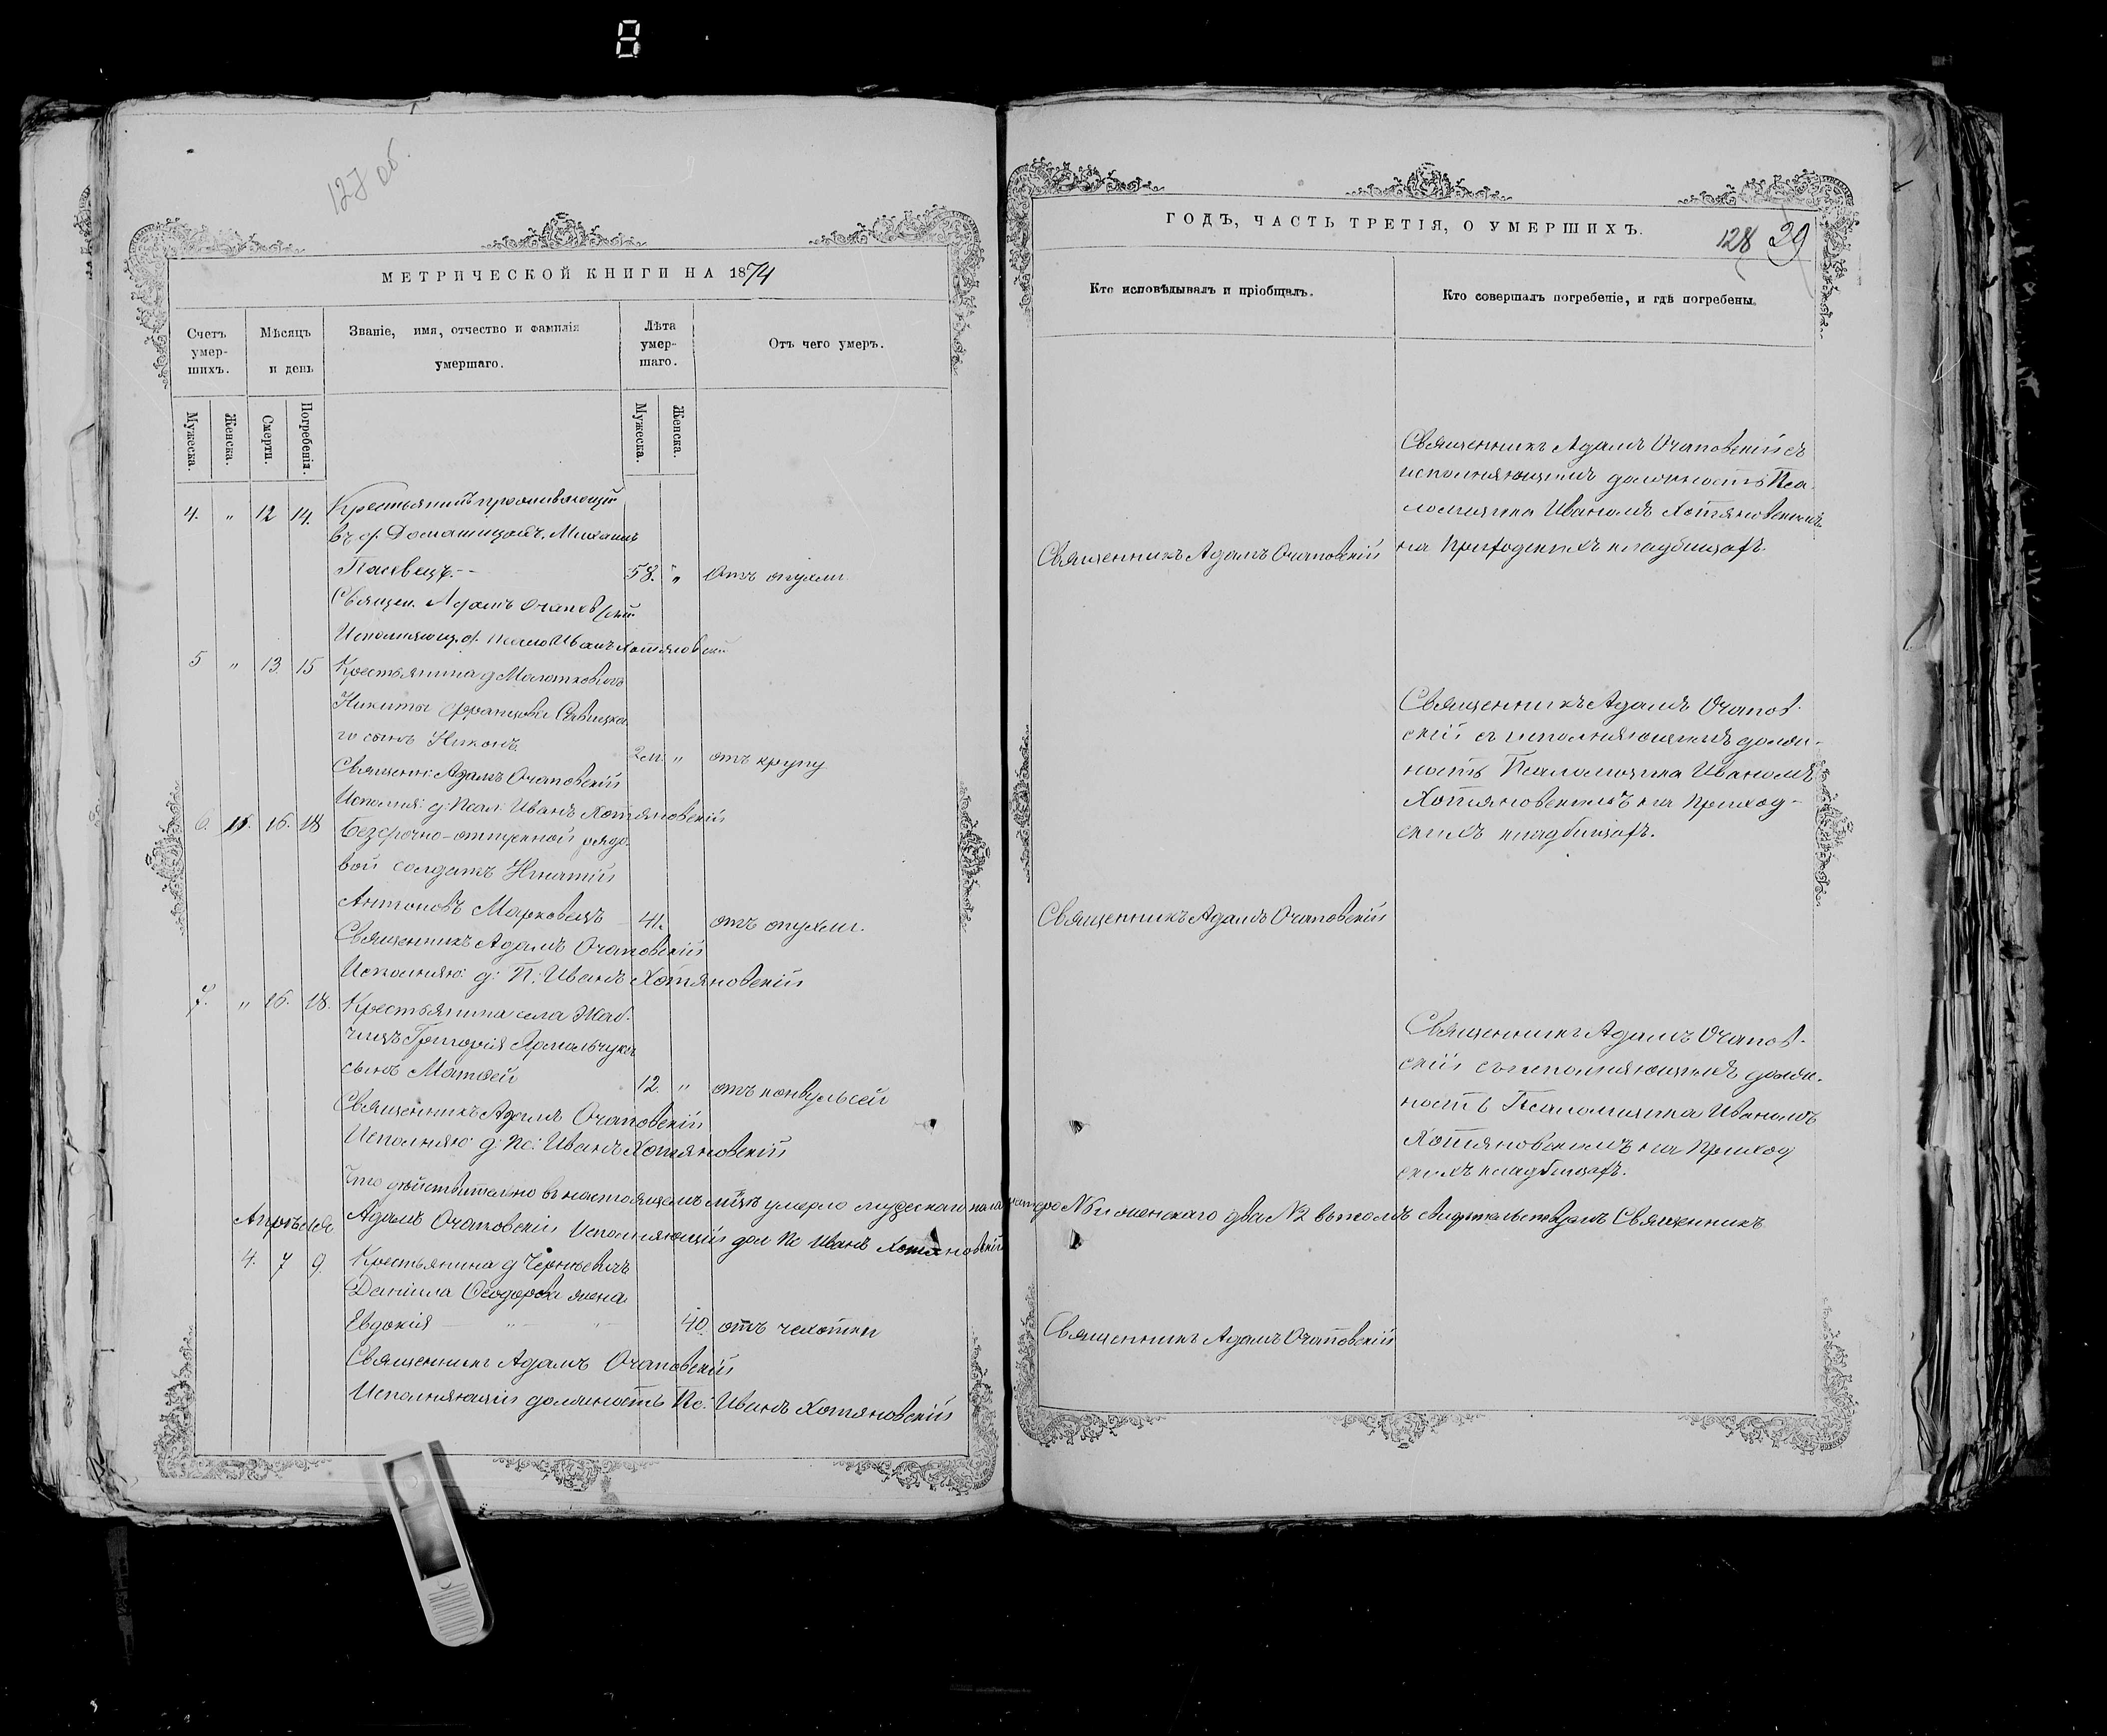 127 об.
МЕТРИЧЕСКОЙ КНИГИ НА 1874
Счетъ умер-шихъ.
Мѣсяцъ и день
Званіе, имя, отчество и фамилія умершаго.
Лѣта умер-шаго.
Отъ чего умеръ.
Мужеска.
Женска.
Смерти.
Погребенія.
Мужеска.
Женска.
4. " 12 14. Крестьянинъ проживающій
въ с. Домашицахъ Михаилъ
58. " Отъ опухли
Священ. Адамъ Очаповскій
Исполняющ. д. Псало Иванъ Хотяновскій
5 " 13. 15 Крестьянина д
Никиты Францова Савицка
го сынъ Никонъ 2 " отъ крупу
Священ: Адамъ Очаповскій
Исполня: д: Псал: Иванъ Хотяновскій
6. 16. 18 Безсрочно-отпускной рядо
вой солдатъ Игнатій
Антоновъ Марковецъ 41. отъ опухли.
Священникъ Адамъ Очаповскій
Исполняю: д: П: Иванъ Хотяновскій
7. " 16. 18. Крестьянина села Жаб-
чицъ Григорія Ярмальчука
сынъ Матвей 12. " отъ конвульсей
Священникъ Адамъ Очаповскій
Исполняю: д: Пс: Иванъ Хотяновскій
Что дѣйствительно въ настоящемъ мцѣ умерло мужескаго пола № и женскаго два №2 въ томъ свидѣтельствуемъ Священникъ
Адамъ Очаповскій Исполняющій дол Пс Иванъ Хотяновскій
Апрѣля
4. 7 9. Крестьянина д Чернѣевичъ
Даніила Ѳеодорова жена
Евдокія 40. отъ чехотки
Священникъ Адамъ Очаповскій
Исполняющій должность Пс: Иванъ Хотяновскій
ГОДЪ, ЧАСТЬ ТРЕТІЯ, О УМЕРШИХЪ.
128 29
Кто исповѣдывалъ и пріобщалъ.
Кто совершалъ погребеніе, и гдѣ погребены.
Священникъ Адамъ Очаповскій съ
исполняющимъ должность Пса-
ломщика Иваномъ Хотяновскимъ
Священникъ Адамъ Очаповскій
на Приходскихъ кладбищахъ.
Священникъ Адамъ Очапов-
скій съ исполняющимъ долж-
ность Псаломщика Иваномъ
Хотяновскимъ на Приход-
скихъ кладбищахъ.
Священникъ Адамъ Очаповскій
Священникъ Адамъ Очапов-
скій съ исполняющимъ долж-
ность Псаломщика Иваномъ
Хотяновскимъ на Приход
скихъ кладбищахъ.
Священникъ Адамъ Очаповскій